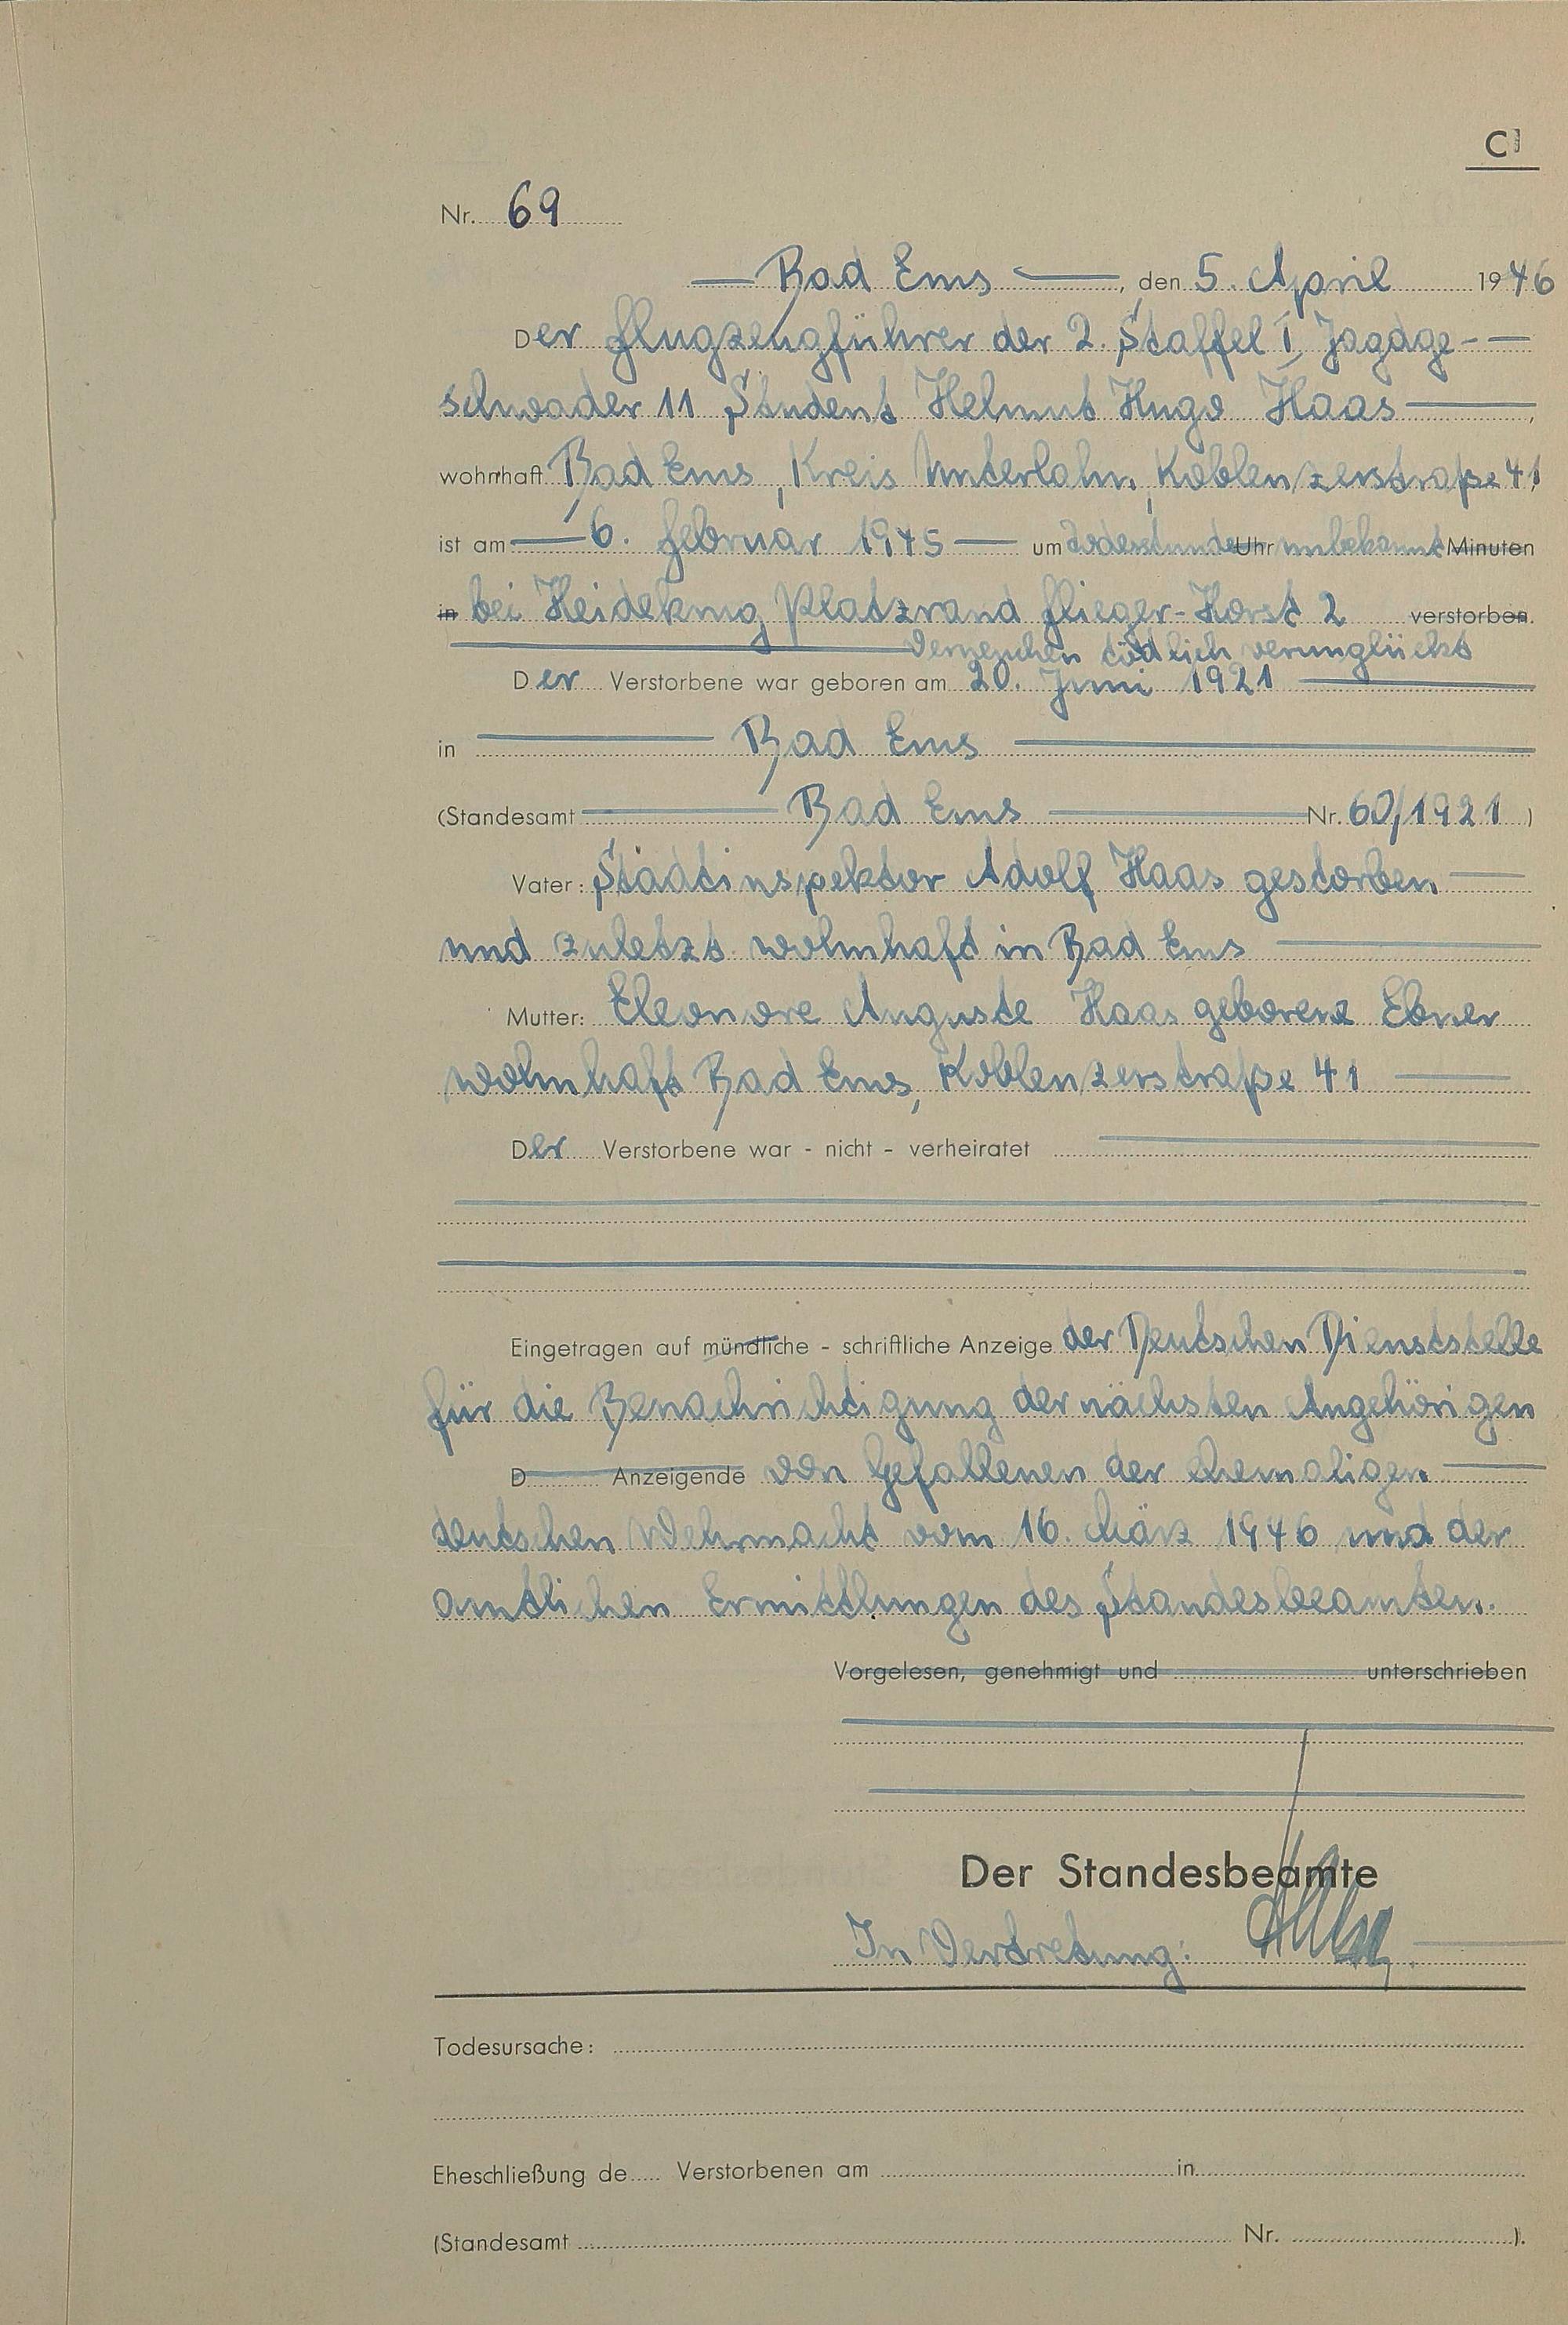 C
Nr. 69
Bad Ems, den 5. April 1946
Der Flugzeugführer der 2. Staffel I. Jagdge-
schwader 11 Student Helmut Hugo Haas,
wohnhaft Bad Ems, Kreis Unterlahn, Koblenzerstraße 41
ist am 6. Februar 1945 um Todesstunde Uhr unbekannt Minuten
in bei Heidekrug Platzrand Flieger-Horst 2 verstorben.
Werneuchen tödlich verunglückt
Der Verstorbene war geboren am 20. Juni 1921
in Bad Ems
(Standesamt Bad Ems Nr. 60/1921)
Vater: Stadtinspektor Adolf Haas gestorben
und zuletzt wohnhaft in Bad Ems
Mutter: Eleonore Auguste Haas geborene Ebner
wohnhaft Bad Ems, Koblenzerstraße 41
Der Verstorbene war - nicht - verheiratet
Eingetragen auf mündliche - schriftliche Anzeige der Deutschen Dienststelle
für die Benachrichtigung der nächsten Angehörigen
D Anzeigende von Gefallenen der ehemaligen
deutschen Wehrmacht vom 16. März 1946 und der
amtlichen Ermittlungen des Standesbeamten.
Vorgelesen, genehmigt und unterschrieben
Der Standesbeamte
In Vertretung:
Todesursache:
Eheschließung de Verstorbenen am in
(Standesamt Nr. ).